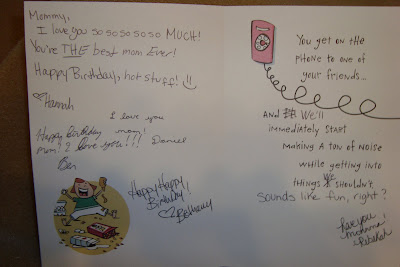 Mommy,
I love you so so so so so MUCH!
You're THE best mom Ever!
Happy Birthday, hot stuff! :)
♡Hannah
I love you
Happy birthday mom!
mom? I love you!!! Daniel
Ben
Happy Happy
Birthday!
♡ Bethany
YOU GET ON THE
PHONE TO ONE OF
YOUR FRIENDS...
AND WE'LL
IMMEDIATELY START
MAKING A TON OF NOISE
WHILE GETTING INTO
THINGS WE SHOULDN'T.
SOUNDS LIKE FUN, RIGHT?
love you
momma!
Rebekah